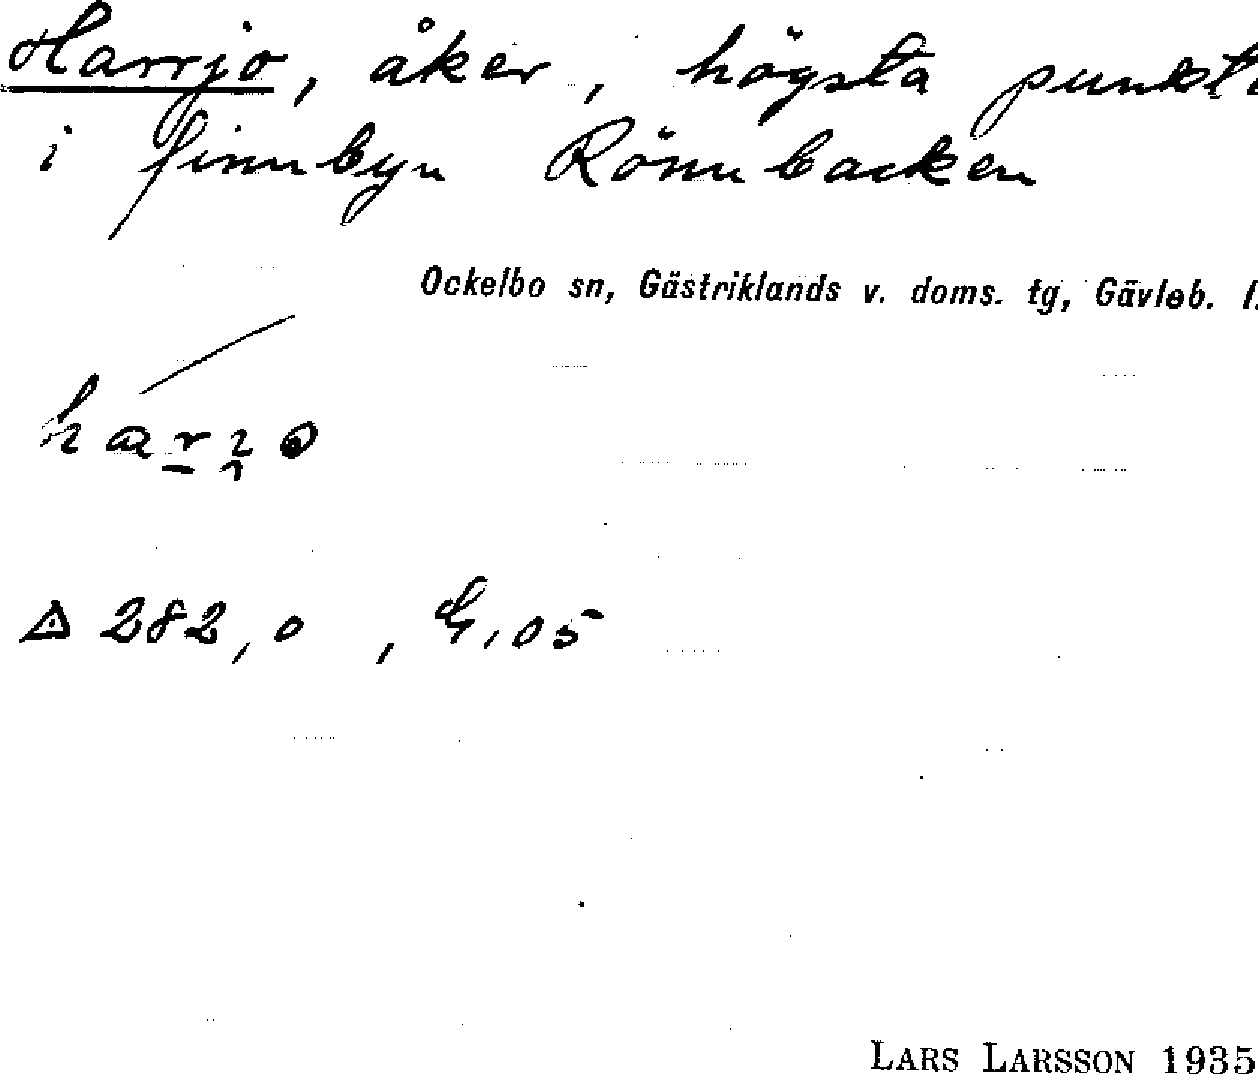 Harrjo, åker, högsta punkt
i finnbyn Rönnbacken
Ockelbo sn, Gästriklands v. doms. tg, Gävleb. l.
Δ 282,0 , G.05
LARS LARSSON 1935